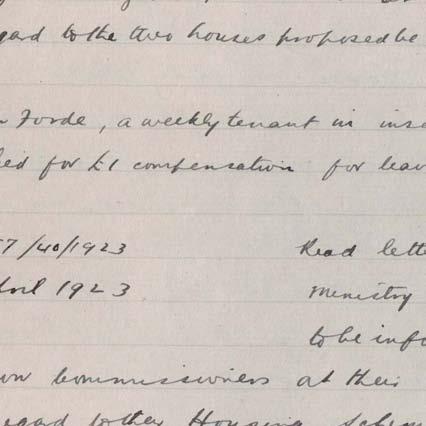 gard to the two houses proposed be
Forde, a weekly tenant in insa
ied for £1 compensation for leav
57/40/1923 Read lette
April 1923 Ministry
to be info
wn Commissioners at their
egard to the Housing Schem